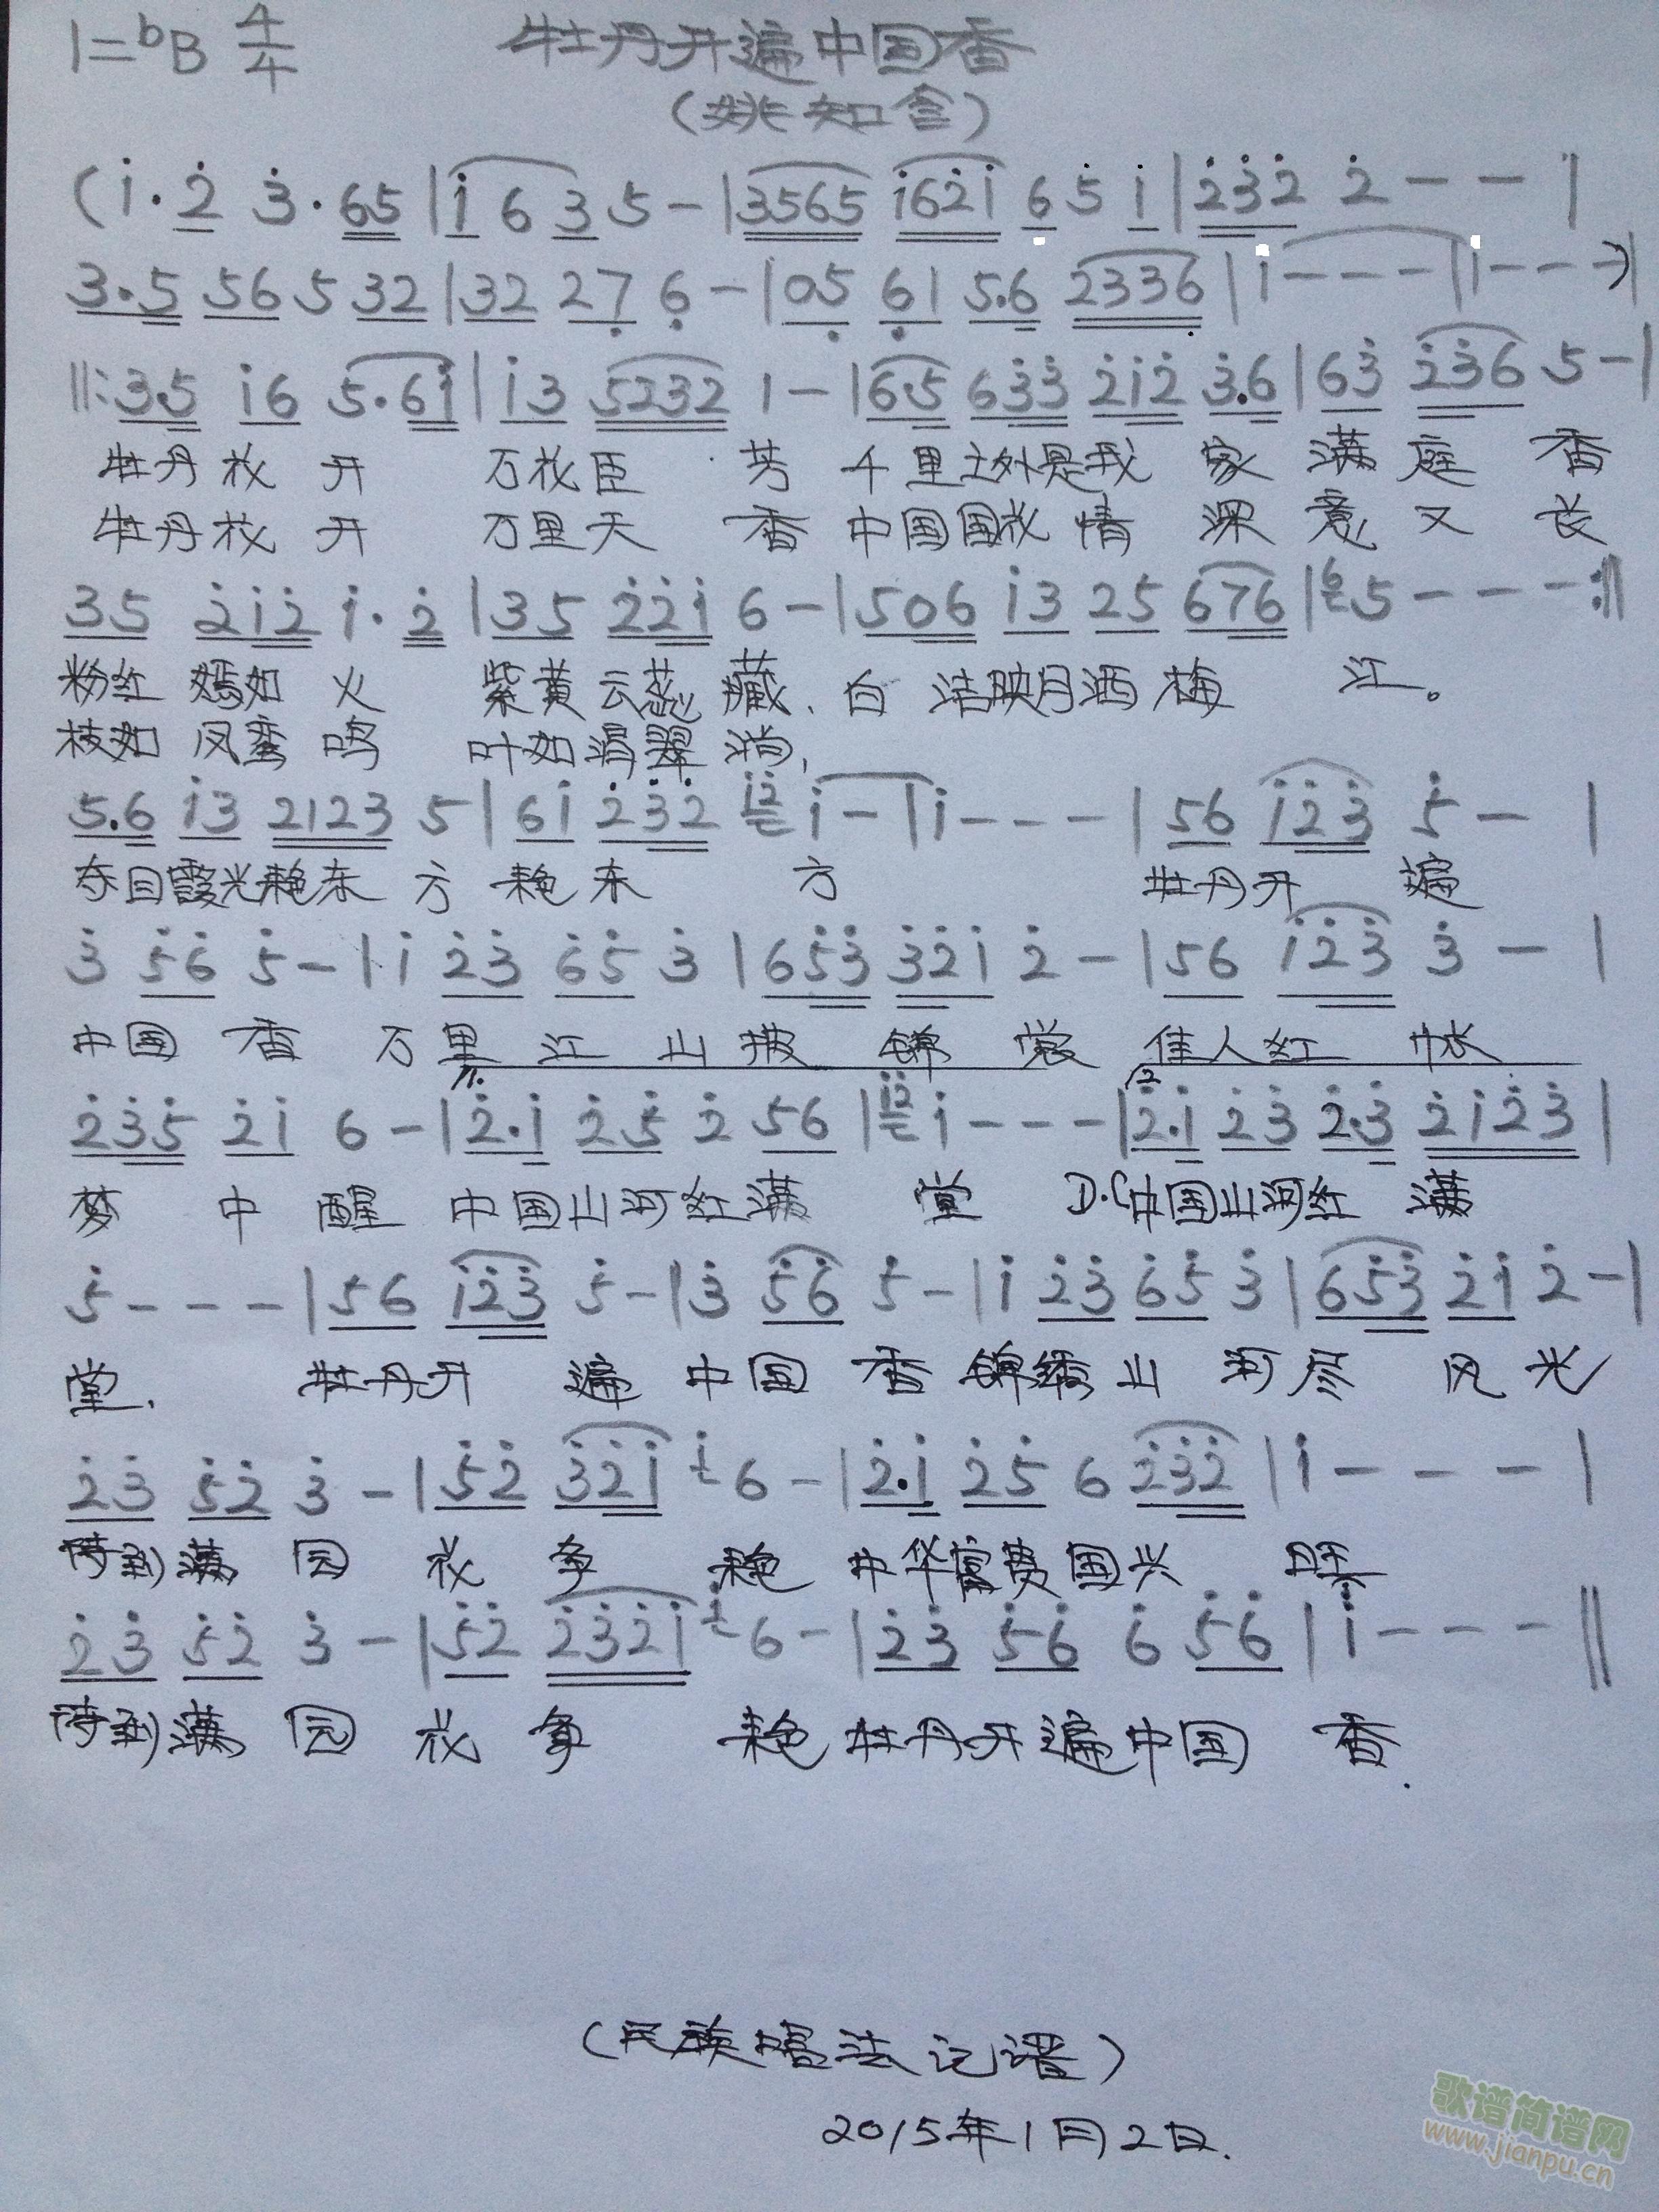 1=bB 4/4 牡丹开遍中国香
(姚知含)
(i·2 3·65|i 6 3 5-|3565 i62i 6 5 i|232 2--|
3·5 56 5 32|32 27 6-|05 61 5.6 2336|i---|i---)|
‖:3.5 i6 5·6i|i3 5232 1-|6·5 633 2i2 3.6|63 236 5-|
牡丹花开 万花臣 芳 千里之外是我 家 满庭 香
牡丹花开 万里天 香 中国国花 情 深 意又 长
35 2i2 i·2|35 22i 6-|506 i3 25 676|5---:‖
粉红 嫣如 火 紫黄云蕊藏、白 洁映月洒梅 江。
枝如 凤鸾 鸣 叶如滴翠淌,
5.6 i3 2123 5|6i 232 i-|i---|56 i23 5-|
夺目霞光艳东 方 艳东 方 牡丹开 遍
3 56 5-|i 23 65 3|653 32i 2-|56 i23 3-|
中国 香 万里 江 山披 锦 裳 佳人红 妆
235 2i 6-|2·i 25 2 56|i---|2.i 23 2.3 2i23|
梦 中 醒 中国山河红满 堂 D.C中国山河红 满
5---|56 i23 5-|3 56 5-|i 23 65 3|653 2i 2-|
堂. 牡丹开 遍 中国 香 锦绣山 河尽 风光
23 52 3-|52 32i 6-|2.i 25 6 232|i---|
待到满 园 花 争 艳 中华富贵国兴 旺
23 52 3-|52 232i 6-|23 56 6 56|i---‖
待到满 园 花 争 艳 牡丹开遍中国 香.
(民族唱法记谱)
2015年1月2日.
歌谱简谱网
www.jianpu.cn